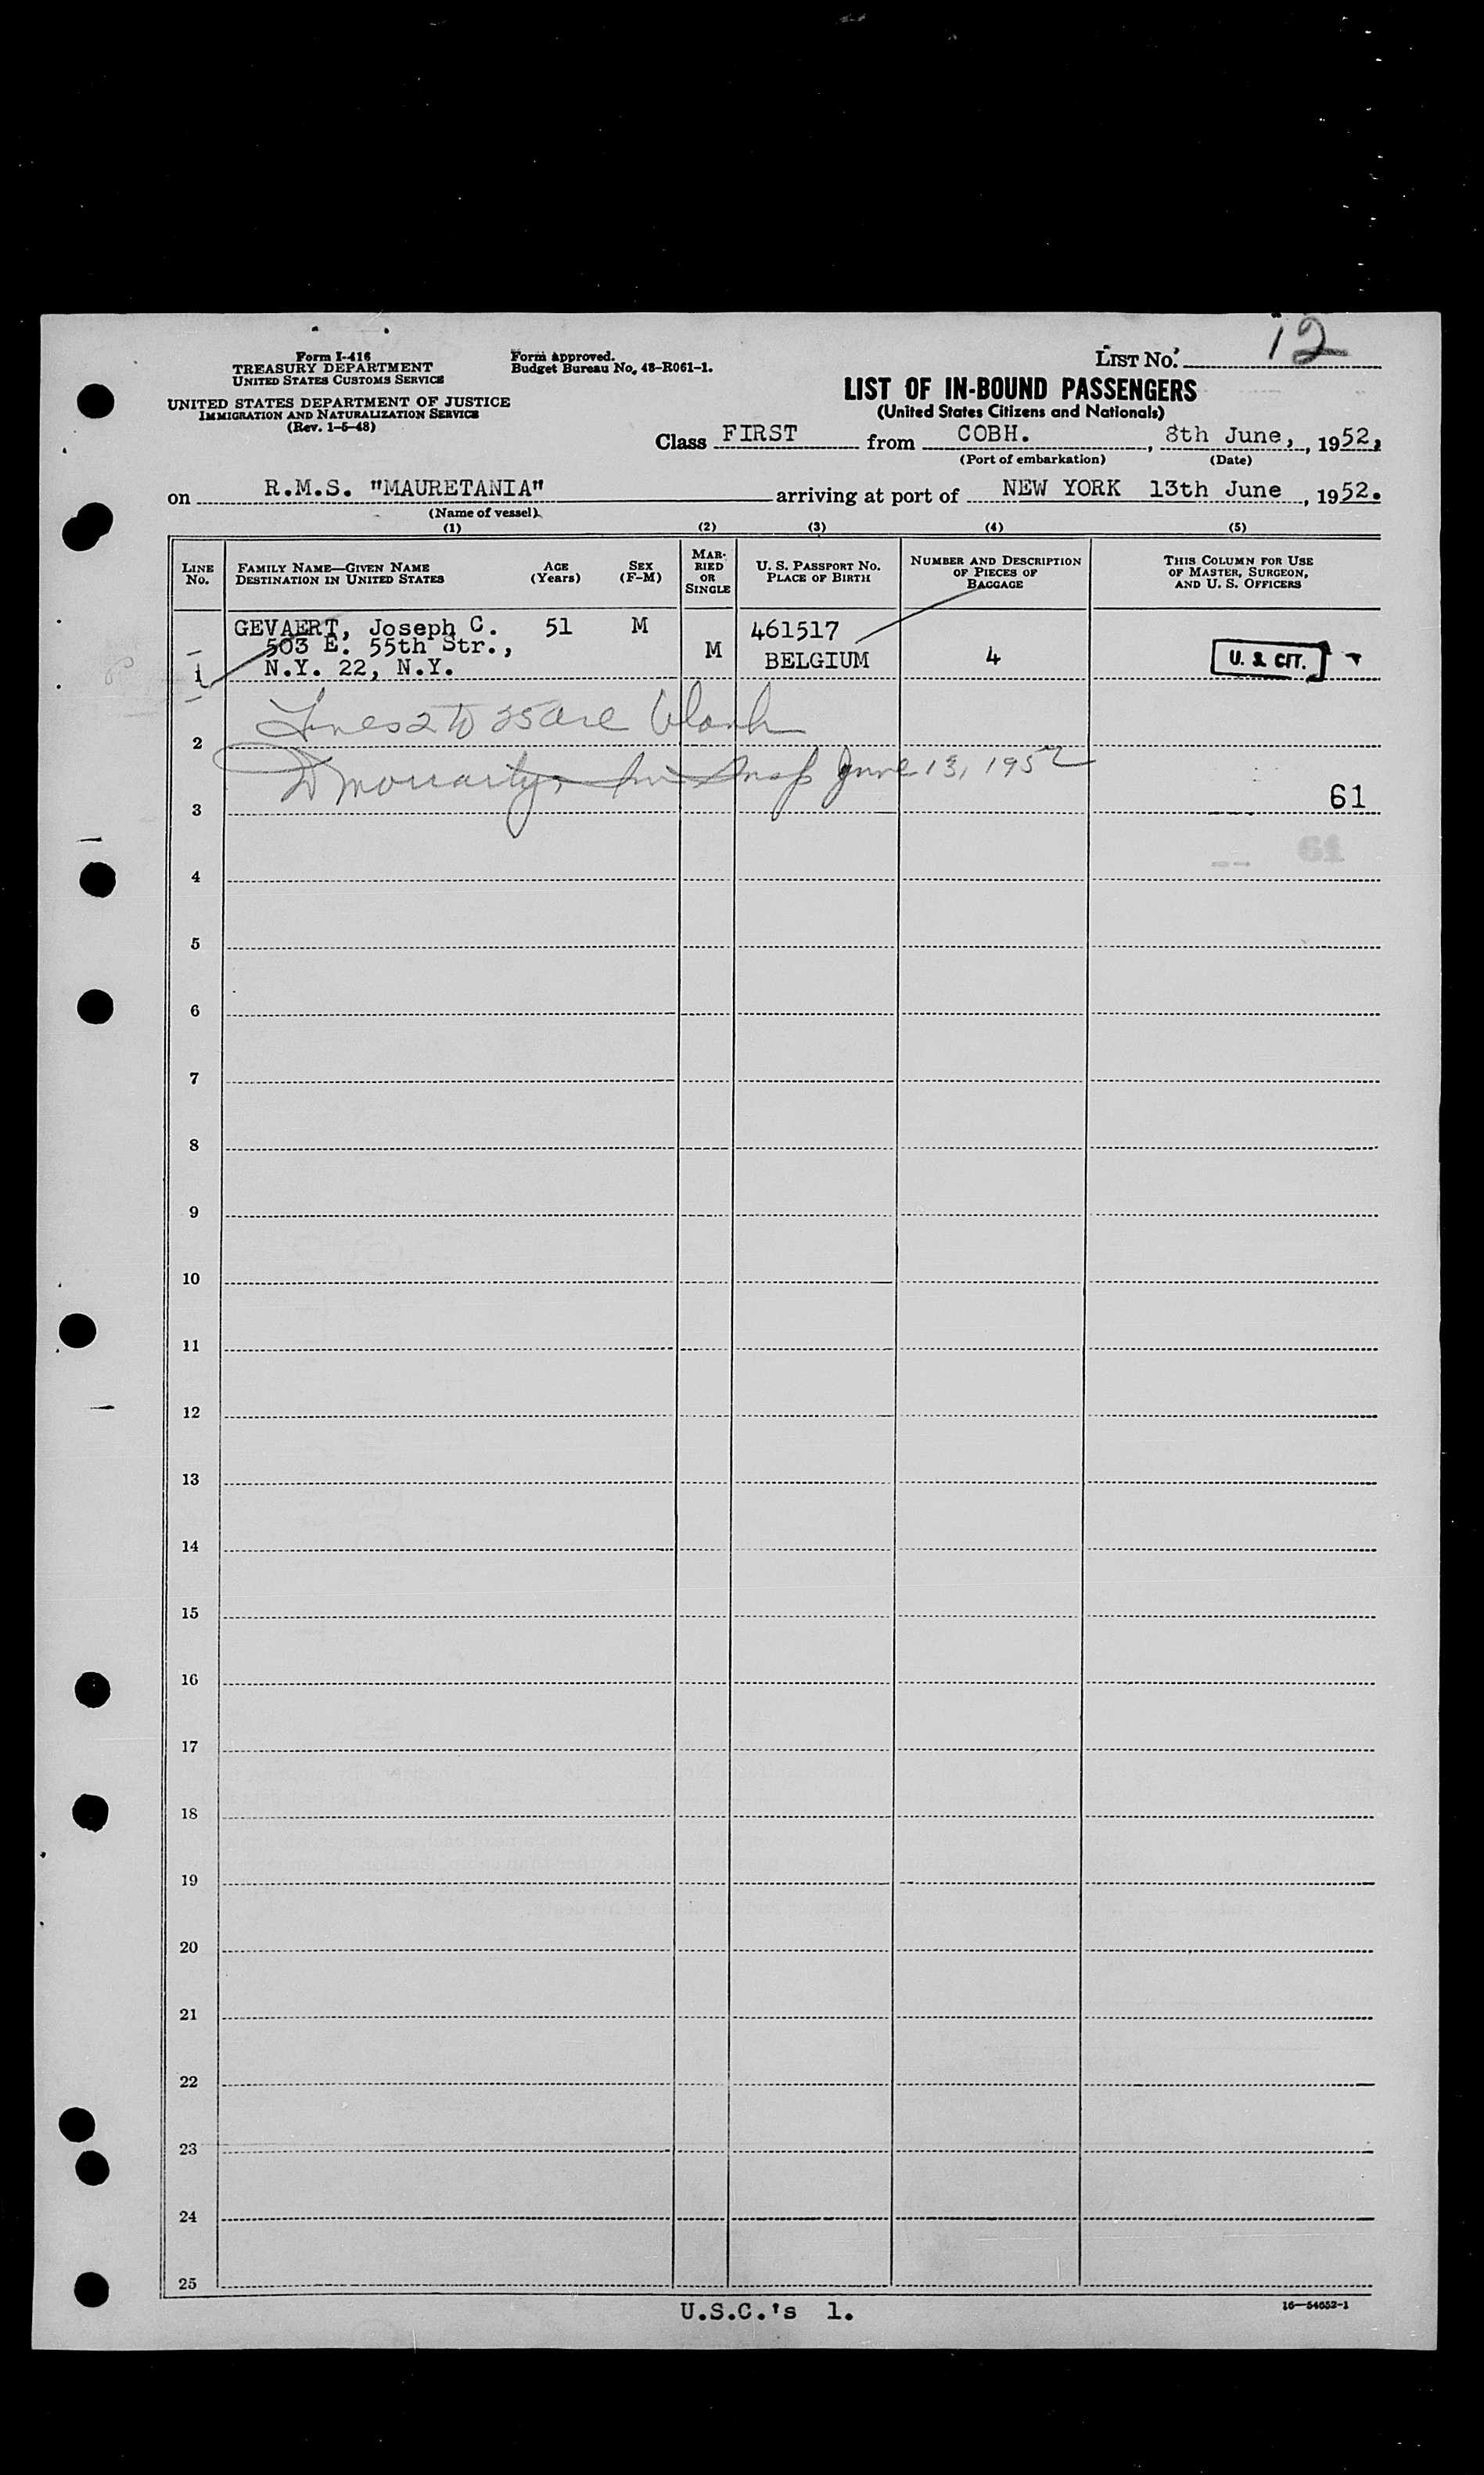 Form I-416
TREASURY DEPARTMENT
UNITED STATES CUSTOMS SERVICE
UNITED STATES DEPARTMENT OF JUSTICE
IMMIGRATION AND NATURALIZATION SERVICE
(Rev. 1-5-48)
Form approved.
Budget Bureau No. 48-R061-1.
LIST No. 12
LIST OF IN-BOUND PASSENGERS
(United States Citizens and Nationals)
Class FIRST from COBH., 8th June, , 1952,
(Port of embarkation) (Date)
on R.M.S. "MAURETANIA" arriving at port of NEW YORK 13th June , 1952.
(Name of vessel)
(1) (2) (3) (4) (5)
LINE No.
FAMILY NAME—GIVEN NAME
DESTINATION IN UNITED STATES
AGE (Years)
SEX (F-M)
MARRIED OR SINGLE
U. S. PASSPORT No.
PLACE OF BIRTH
NUMBER AND DESCRIPTION OF PIECES OF BAGGAGE
THIS COLUMN FOR USE OF MASTER, SURGEON, AND U. S. OFFICERS
GEVAERT, Joseph C. 51 M 461517
503 E. 55th Str., M BELGIUM 4 U. S. CIT.
1 N.Y. 22, N.Y.
Lines 2 to 25 are blank
2
D Moriarty, Im Insp June 13, 1952
61
3
61
4
5
6
7
8
9
10
11
12
13
14
15
16
17
18
19
20
21
22
23
24
25
U.S.C.'s 1.
16—54652-1